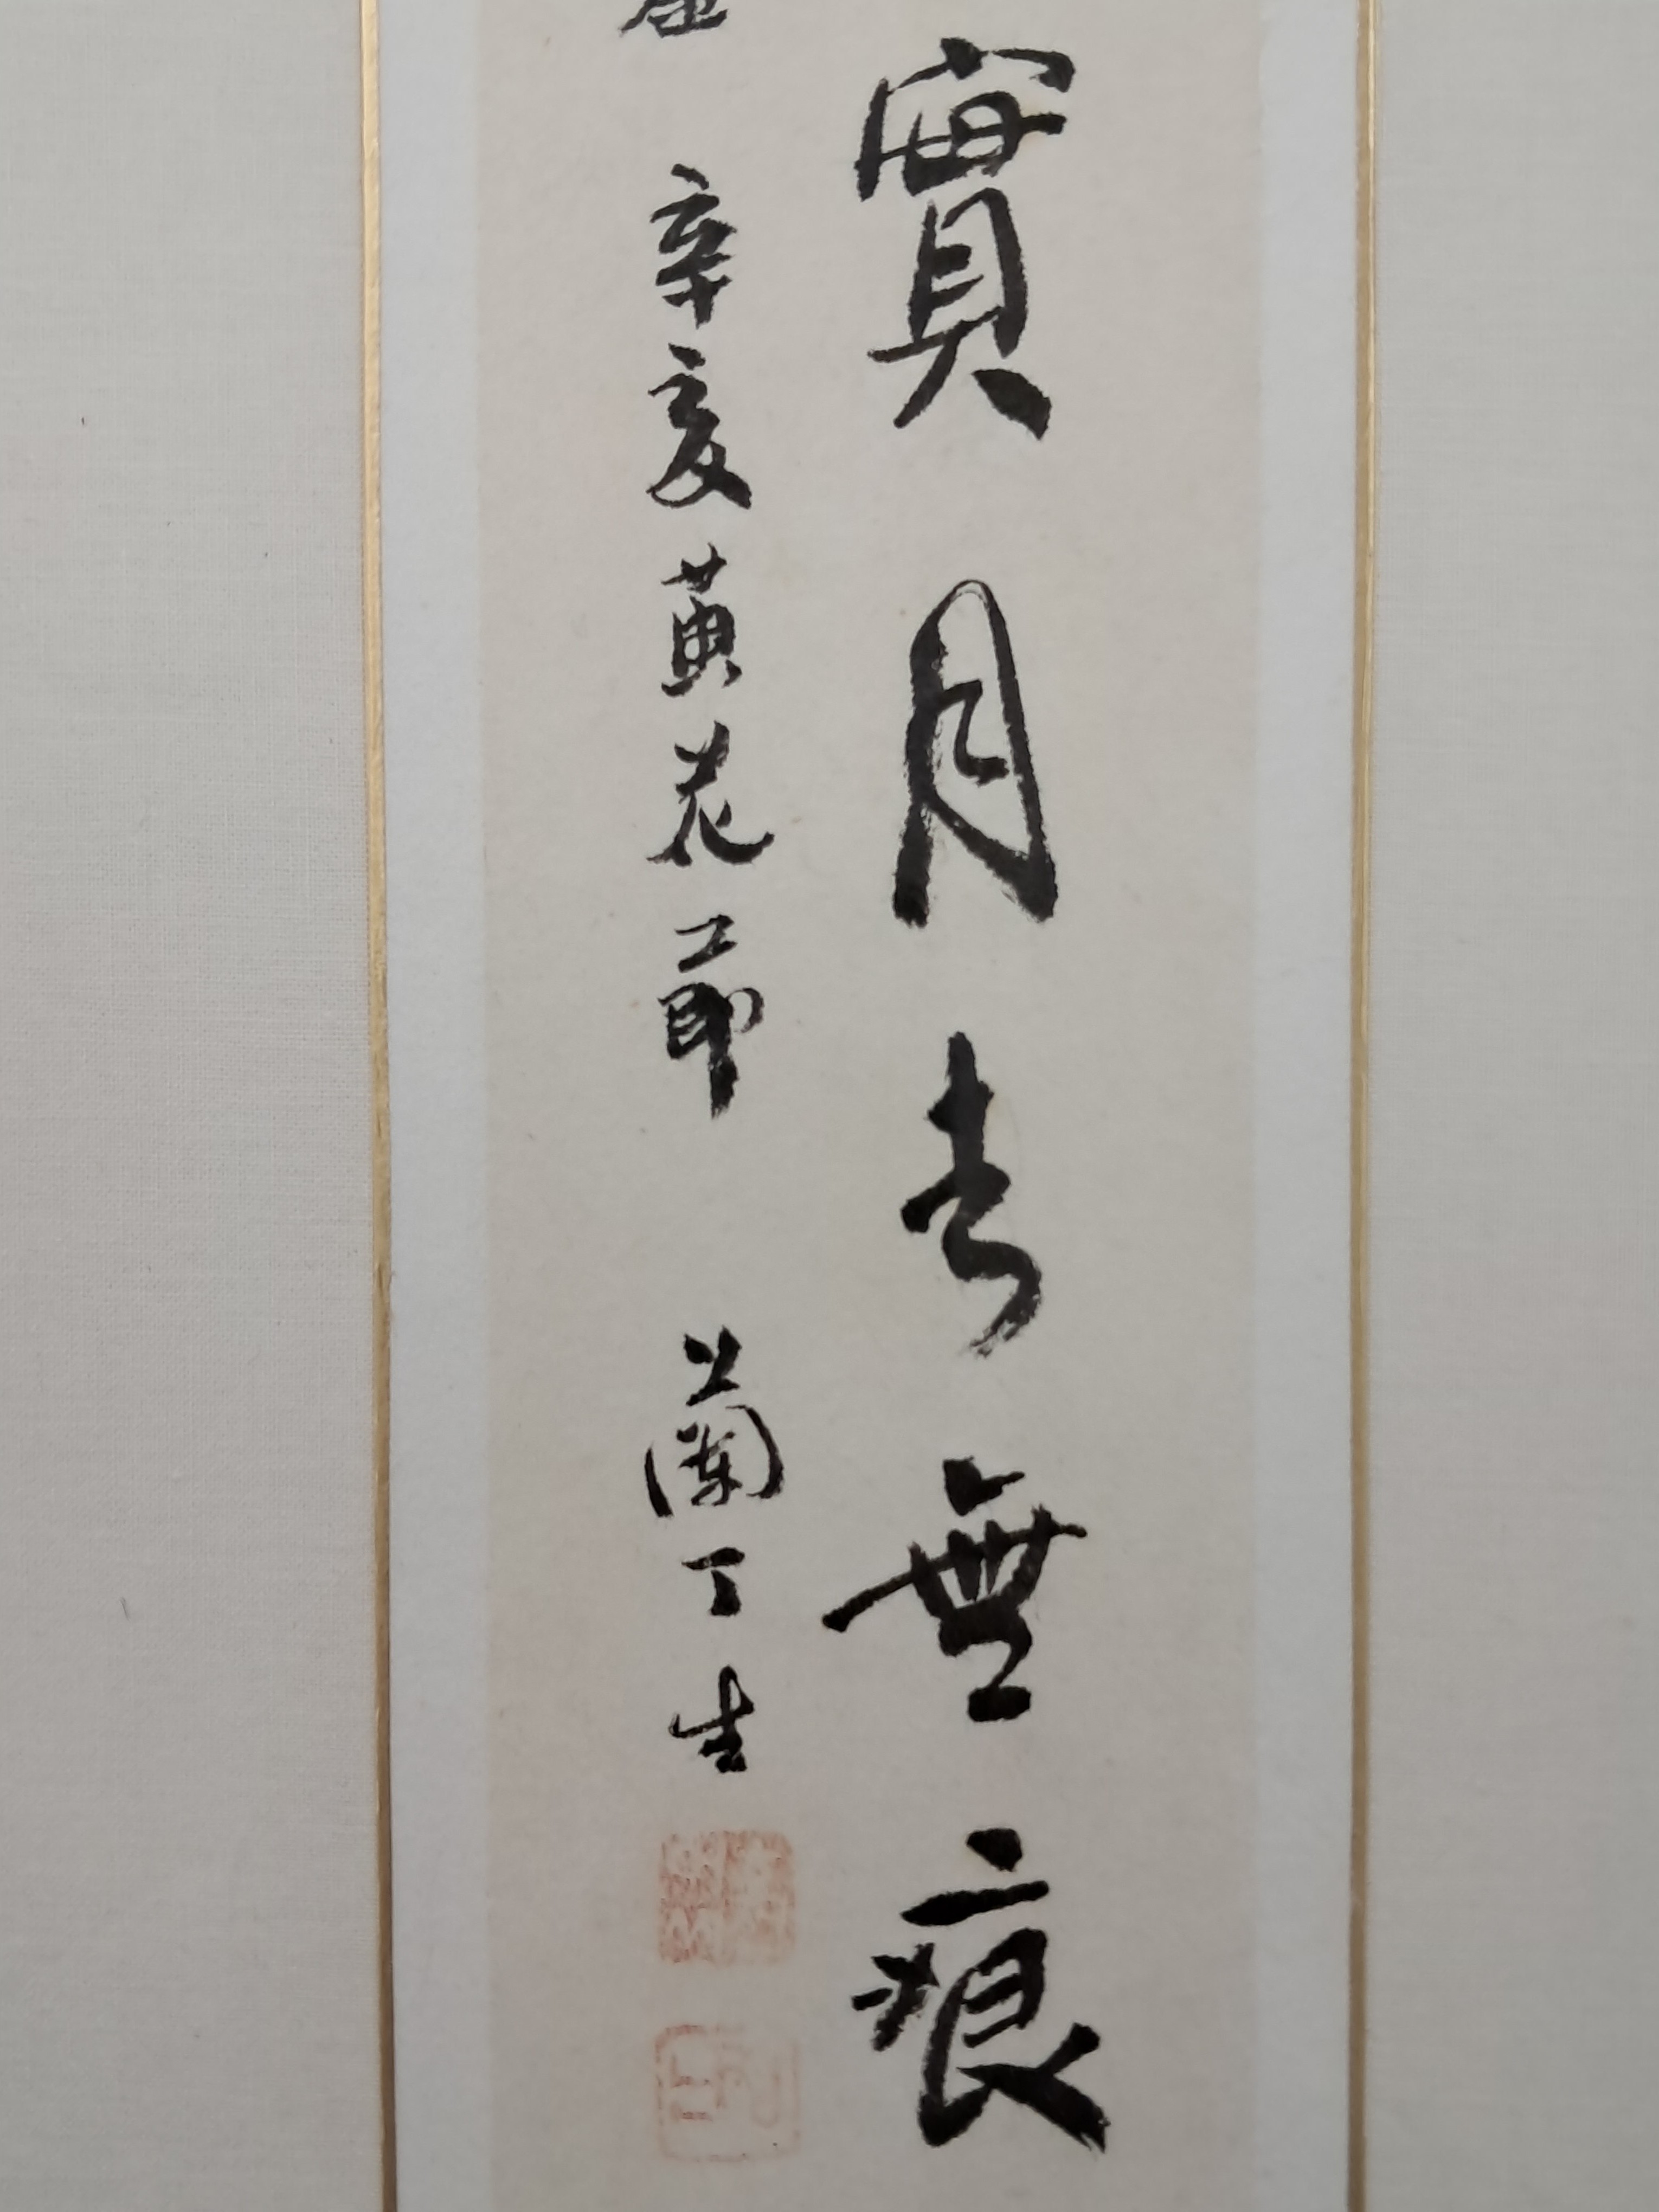 實月去無痕
辛亥黃花節 蘭丁生